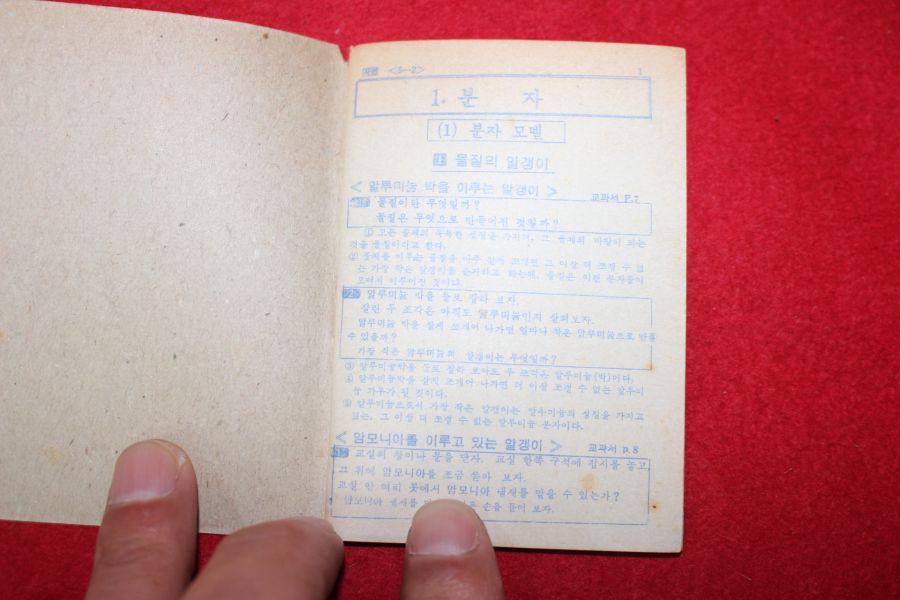 <5-2> 1
1. 분 자
(1) 분자 모델
1 물질의 알갱이
< 알루미늄 박을 이루는 알갱이 > 교과서 P.7
물질이란 무엇일까?
물질은 무엇으로 만들어진 것일까?
① 모든 물체의 독특한 성질을 가지며, 그 물체의 바탕이 되는
것을 물질이라고 한다.
② 물체를 이루는 물질을 아주 잘게 쪼개면 그 이상 더 쪼갤 수 없
는 가장 작은 알갱이를 분자라고 하는데, 물질은 이런 분자들이
모여서 이루어진 것이다.
2 알루미늄 박을 둘로 잘라 보자.
잘린 두 조각은 아직도 알루미늄인지 살펴보자.
알루미늄 박을 잘게 쪼개어 나가면 얼마나 작은 알루미늄으로 만들
수 있을까?
가장 작은 알루미늄의 알갱이는 무엇일까?
③ 알루미늄박을 둘로 잘라 보아도 두 조각은 알루미늄(박)이다.
④ 알루미늄박을 잘게 쪼개어 나가면 더 이상 쪼갤 수 없는 알루미
늄 가루가 될 것이다.
⑤ 알루미늄으로서 가장 작은 알갱이는 알루미늄의 성질을 가지고
있는, 그 이상 더 쪼갤 수 없는 알루미늄 분자이다.
< 암모니아를 이루고 있는 알갱이 > 교과서 p.8
교실의 창이나 문을 닫자. 교실 한쪽 구석에 접시를 놓고,
그 위에 암모니아를 조금 쏟아 보자.
교실 안 여러 곳에서 암모니아 냄새를 맡을 수 있는가?
암모니아 냄새를 손을 들어 보자.